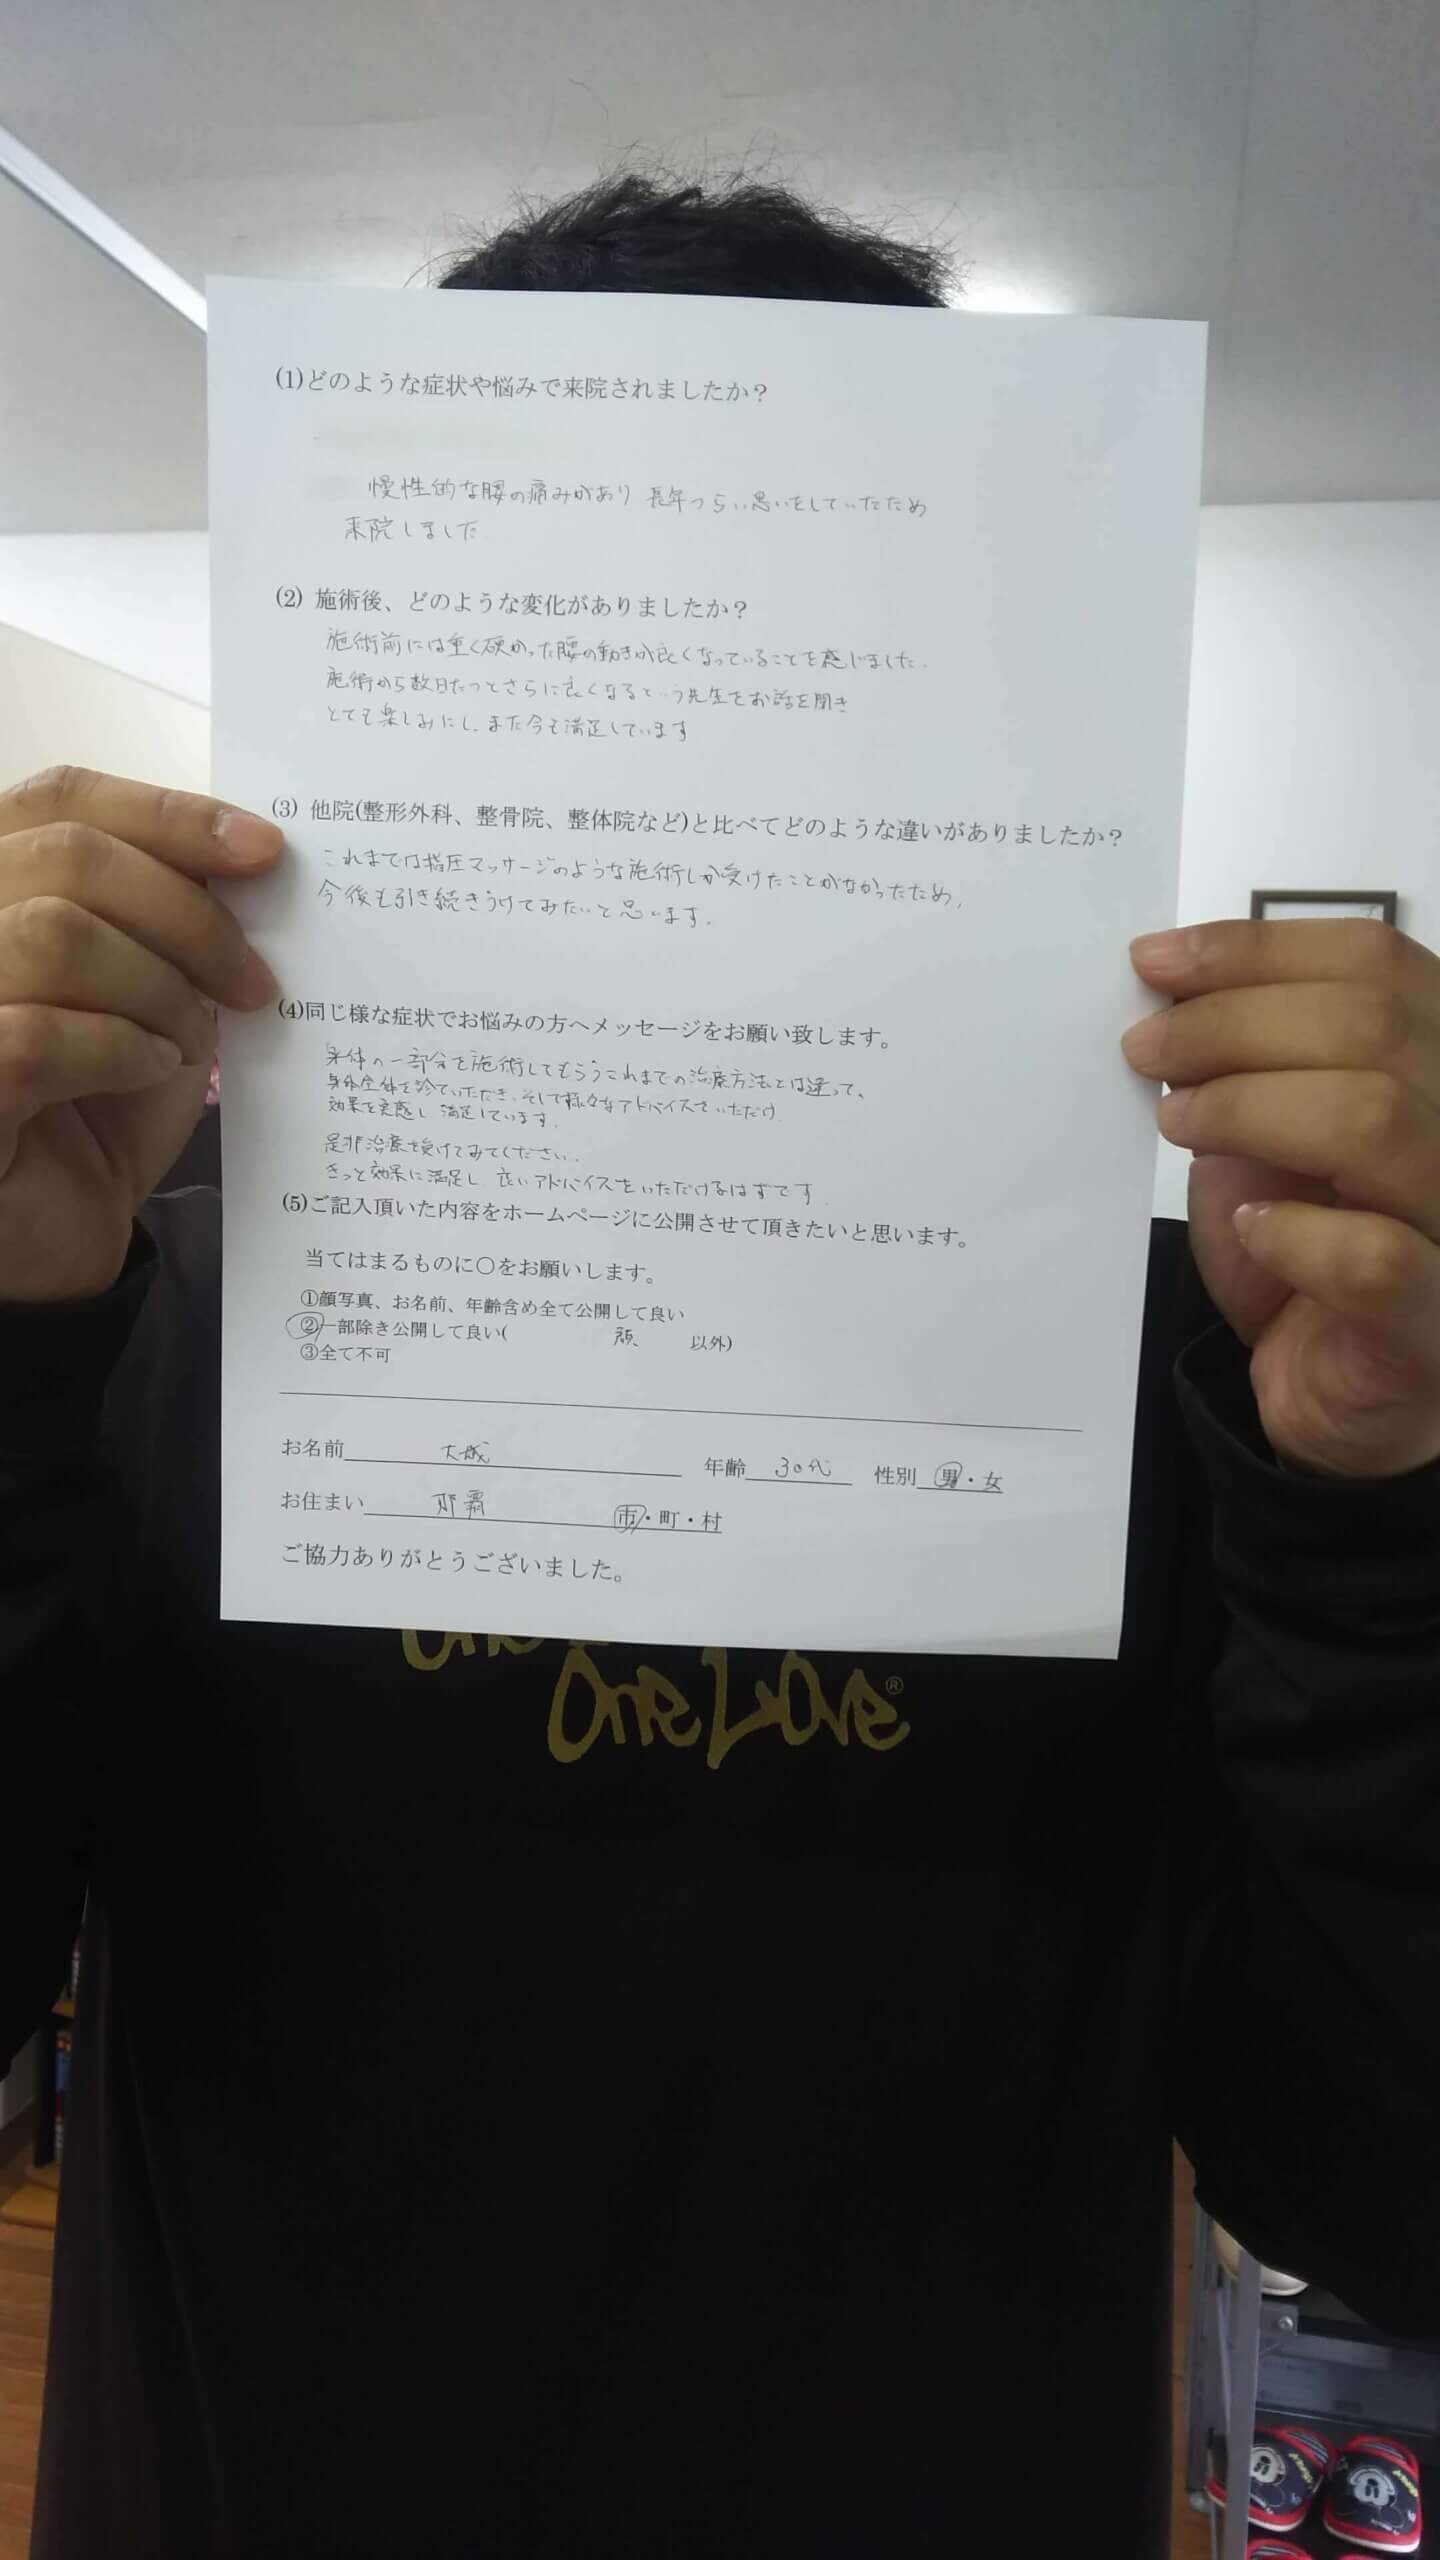 (1)どのような症状や悩みで来院されましたか？
慢性的な腰の痛みがあり 長年つらい思いをしていたため
来院しました
(2) 施術後、どのような変化がありましたか？
施術前には重く硬かった腰の動きが良くなっていることを感じました。
施術から数日たつとさらに良くなるという先生をお話を聞き
とても楽しみにし、また今も満足しています
(3) 他院(整形外科、整骨院、整体院など)と比べてどのような違いがありましたか？
これまでは指圧マッサージのような施術しか受けたことがなかったため、
今後も引き続きうけてみたいと思います。
(4)同じ様な症状でお悩みの方へメッセージをお願い致します。
身体の一部分を施術してもらうこれまでの治療方法とは違って、
身体全体を診ていただき、そして様々なアドバイスをいただけ
効果を実感し 満足しています。
是非治療を受けてみてください。
きっと効果に満足し 良いアドバイスをいただけるはずです。
(5)ご記入頂いた内容をホームページに公開させて頂きたいと思います。
当てはまるものに〇をお願いします。
①顔写真、お名前、年齢含め全て公開して良い
②一部除き公開して良い( 顔 以外)
③全て不可
お名前 大城 年齢 30代 性別 男・女
お住まい 那覇 市・町・村
ご協力ありがとうございました。
One Love®